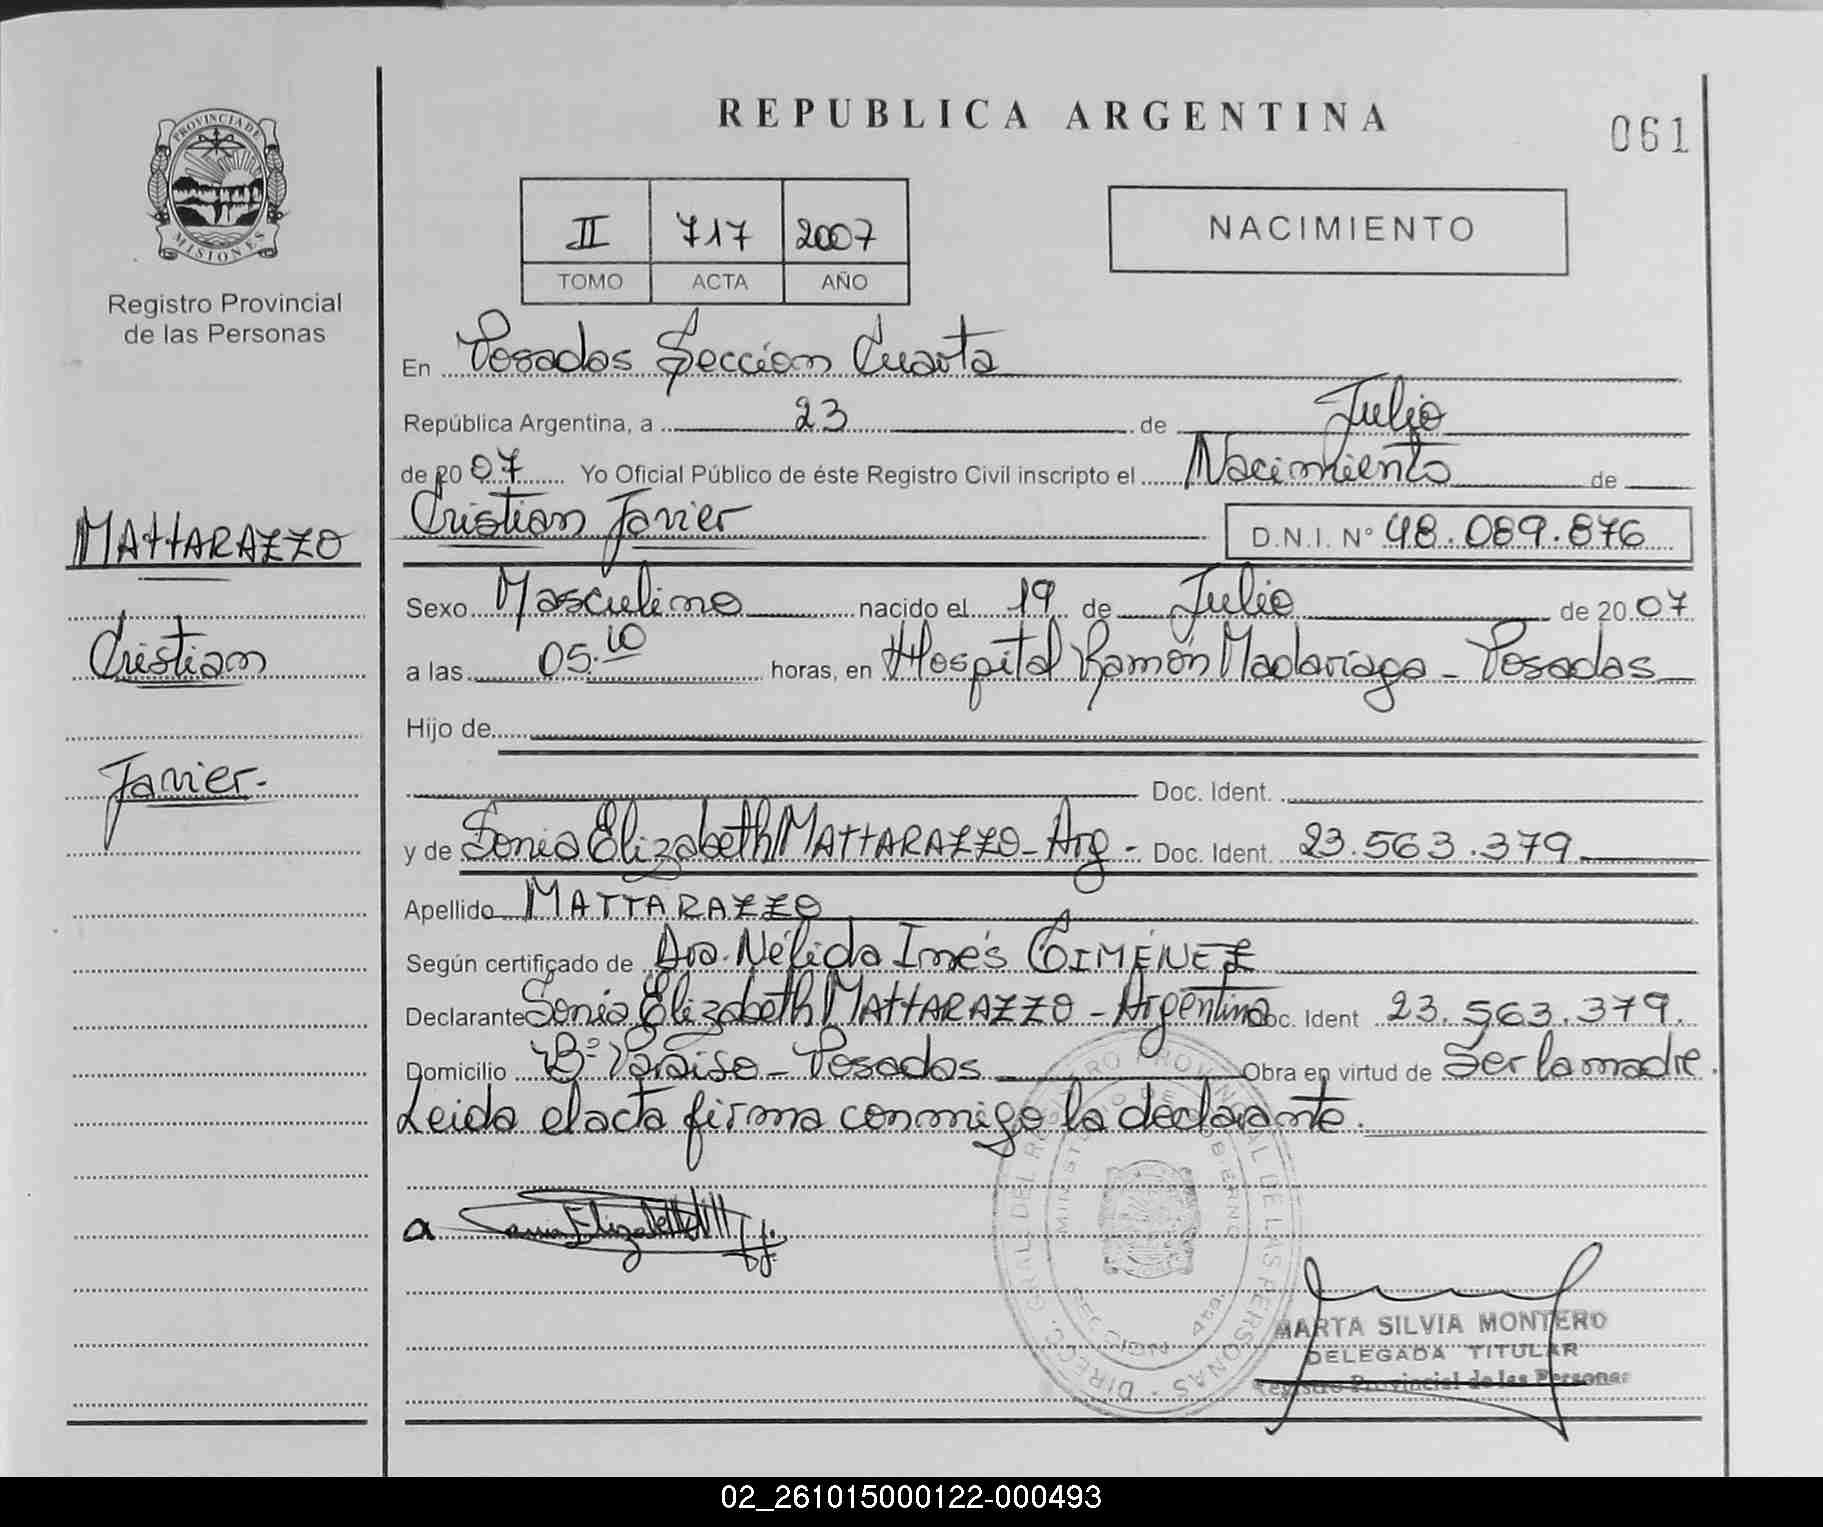 REPUBLICA ARGENTINA
061
PROVINCIA DE
MISIONES
Registro Provincial
de las Personas
II 717 2007
TOMO ACTA AÑO
NACIMIENTO
En Posadas Sección Cuarta
República Argentina, a 23 de Julio
de 2007 Yo Oficial Público de éste Registro Civil inscripto el Nacimiento de
Cristian Javier D.N.I. N° 48.089.876
MATTARAZZO
Cristian
Javier.
Sexo Masculino nacido el 19 de Julio de 2007
a las 05.10 horas, en Hospital Ramón Madariaga - Posadas
Hijo de
Doc. Ident.
y de Sonia Elizabeth MATTARAZZO - Arg - Doc. Ident. 23.563.379
Apellido MATTARAZZO
Según certificado de Dra. Nélida Inés GIMÉNEZ
Declarante Sonia Elizabeth MATTARAZZO - Argentina Doc. Ident 23.563.379.
Domicilio B° Paraiso - Posadas Obra en virtud de Ser la madre.
Leida el acta firma conmigo la declarante.
DIRECC. GRAL. DEL REGISTRO PROVINCIAL DE LAS PERSONAS
MINISTERIO DE GOBIERNO
SECCION 4ta.
MARTA SILVIA MONTERO
DELEGADA TITULAR
Registro Provincial de las Personas
02_261015000122-000493